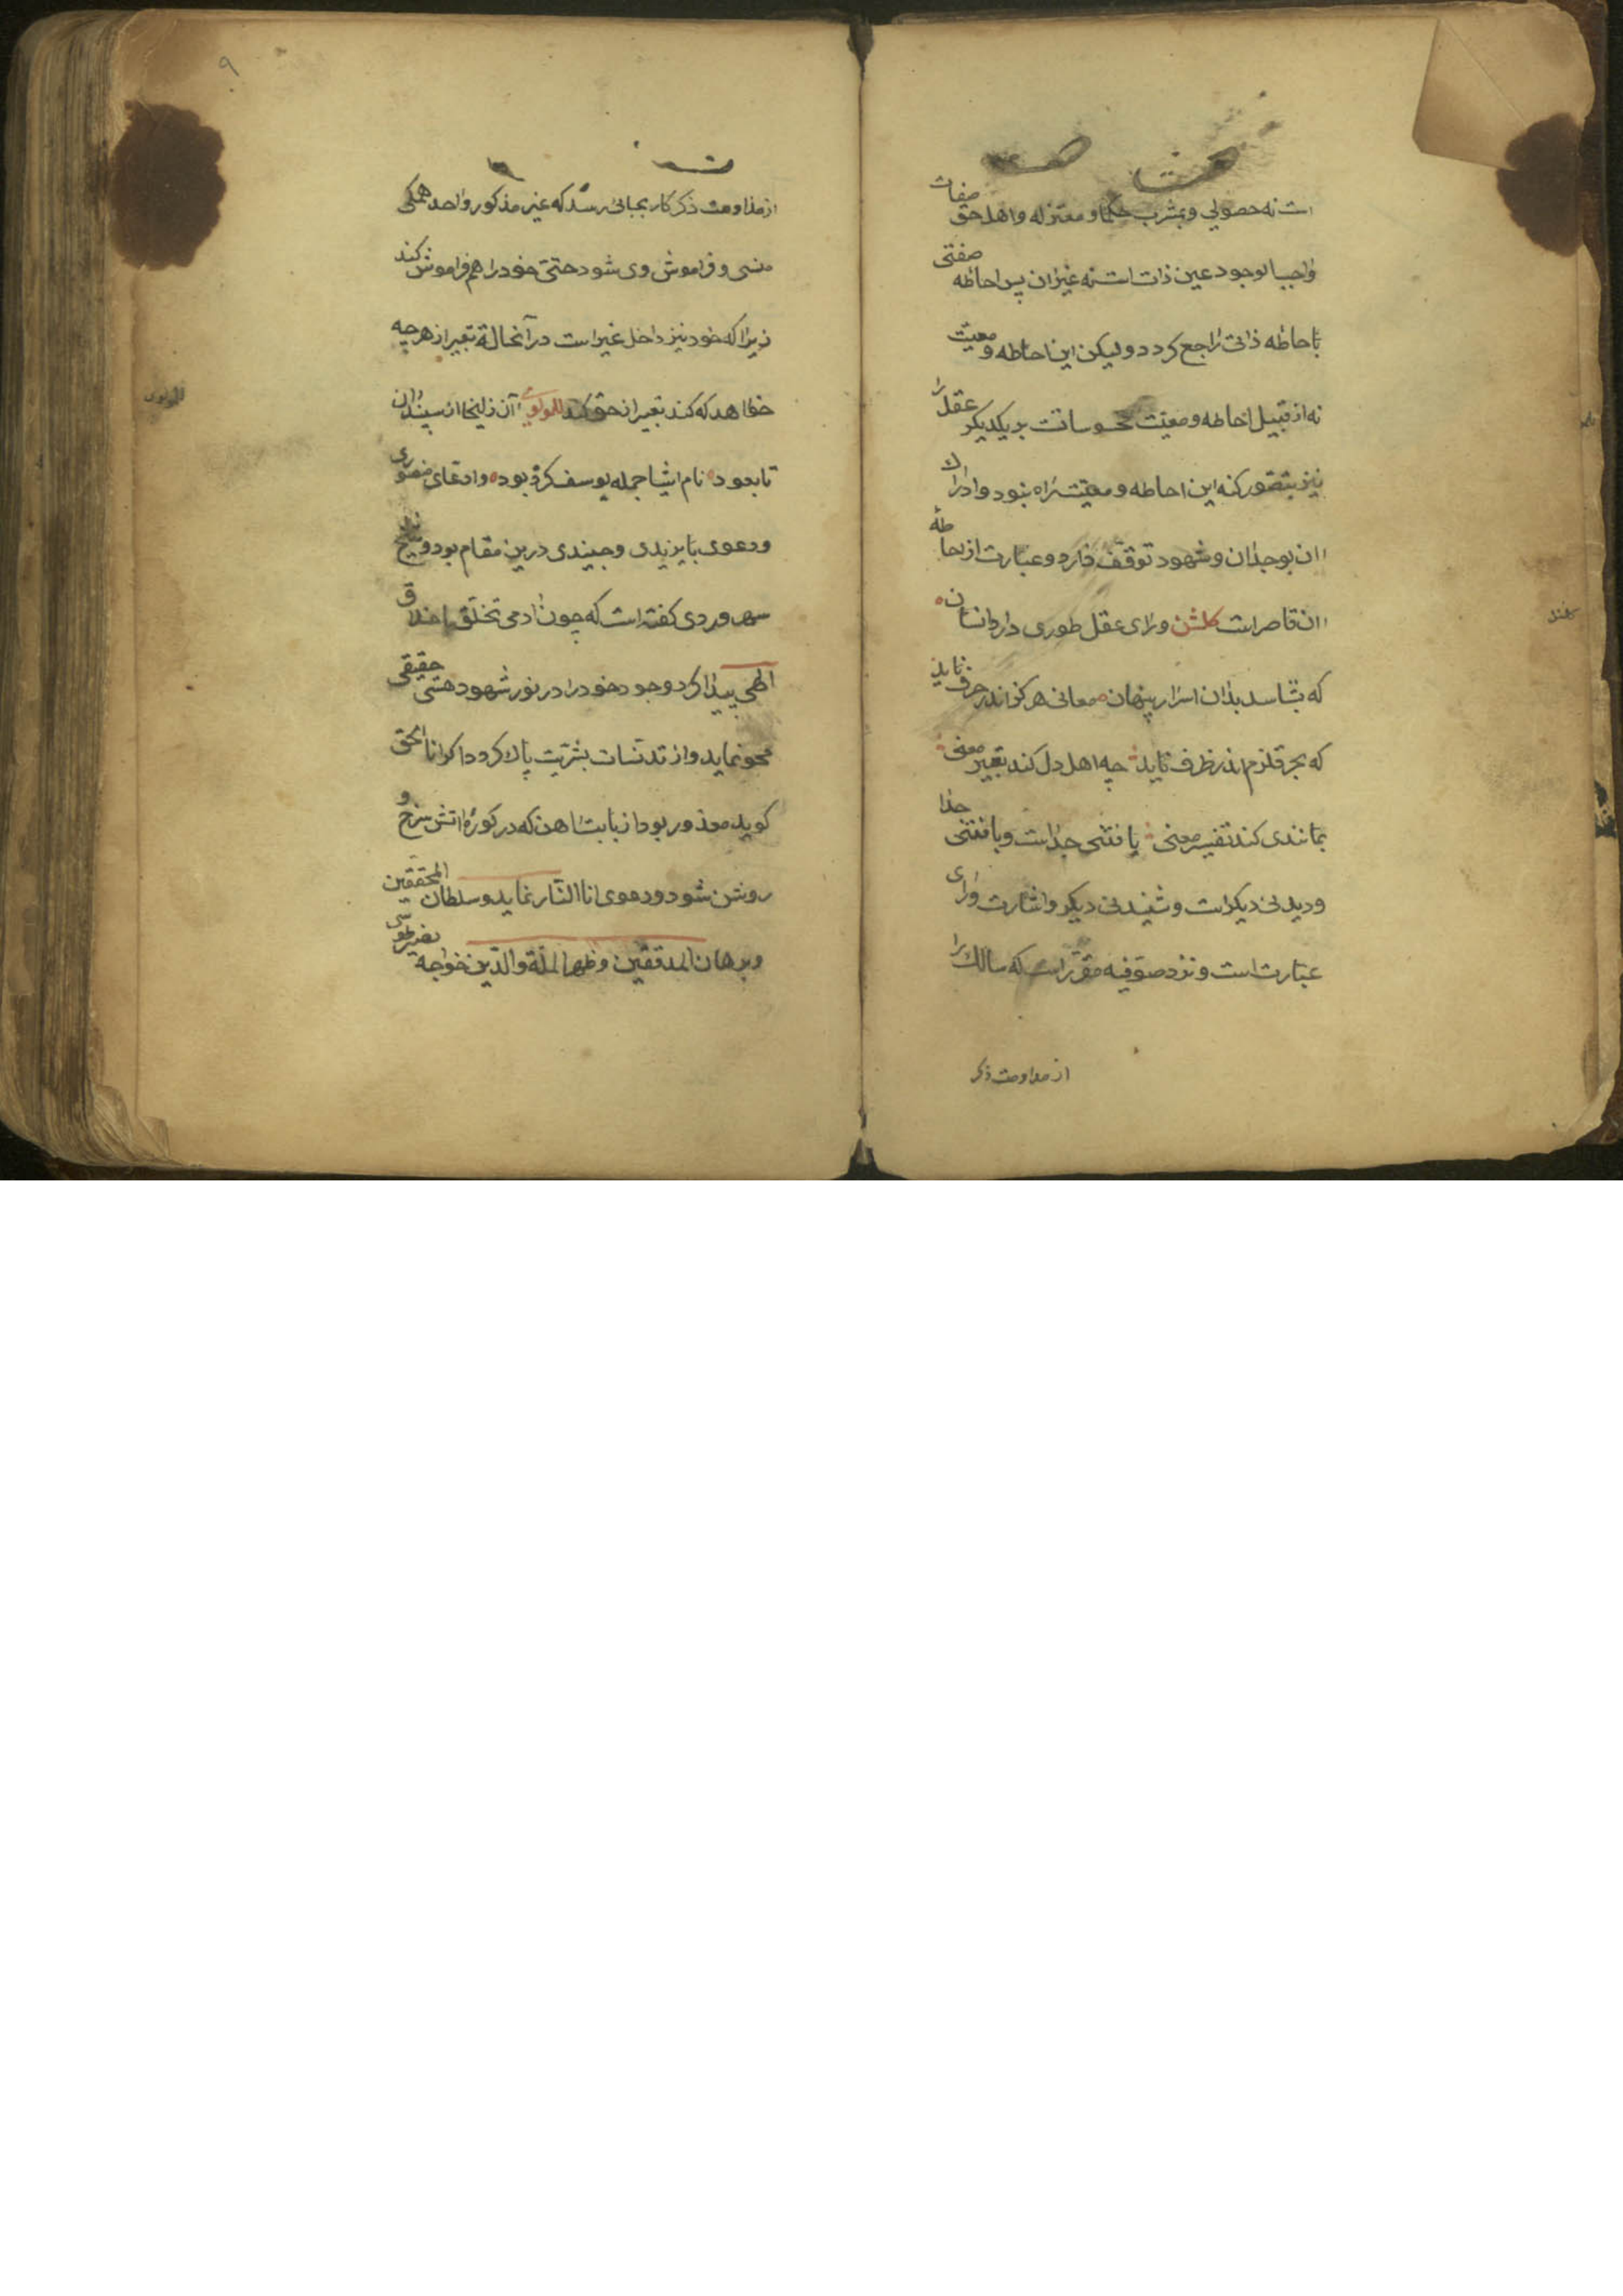 است نه حصولي و بمشرب حكما و معتزله و اهل حق صفات
واجب الوجود عين ذات است نه غيران پس احاطه صفتى
باحاطه ذاتى راجع كردد وليكن اين احاطه و معيت
نه از قبيل احاطه و معيت محسوسات بر يكديكر عقل را
نيز بتصور كنه اين احاطه و معيت راه نبود و ادراك
ان بوجدان و شهود توقف دارد و عبارت از احاطه
ان قاصر است كلشن وراى عقل طورى دارد انسان
كه بشناسد بدان اسرار پنهان معانى هركز اندر حرف نايد
كه بحر قلزم اندر ظرف نايد چه اهل دل كند تعبير معنى
بمانندى كند تفسير معنى يافتنى جداست و بافتنى جدا
و ديدنى ديكر است و شنيدنى ديكر و اشارت وراى
عبارت است و نزد صوفيه مقرر است كه سالك را
از مداومت ذكر
كلشن
٩
از مداومت ذكر كار بجائى رسد كه غير مذكور واحد همكى
منسى و فراموش وى شود حتى خود را هم فراموش كند
زيرا كه خود نيز داخل غير است در آنحالة تعبير از هرچه
خواهد كه كند تعبير از حق كند للمولوى آن زليخا از سپندان
تا بعود نام اشيا جمله يوسف كرده بود و ادعاى منصورى
و دعوى بايزيدى و جنيدى درين مقام بود و شيخ
سهروردى كفته است كه چون ادمى تخلق باخلاق
الهى پيدا كرد وجود خود را در نور شهود هستى حقيقى
محو نمايد و از تدنسات بشريت پاك كردد اكر انا الحق
كويد معذور بود از بابت اهن كه در كوره اتش سرخ و
روشن شود و دعوى انا النار نمايد و سلطان المحققين
و برهان المدققين و ظهير الملة و الدين خواجه نصير طوسى
للمولوى